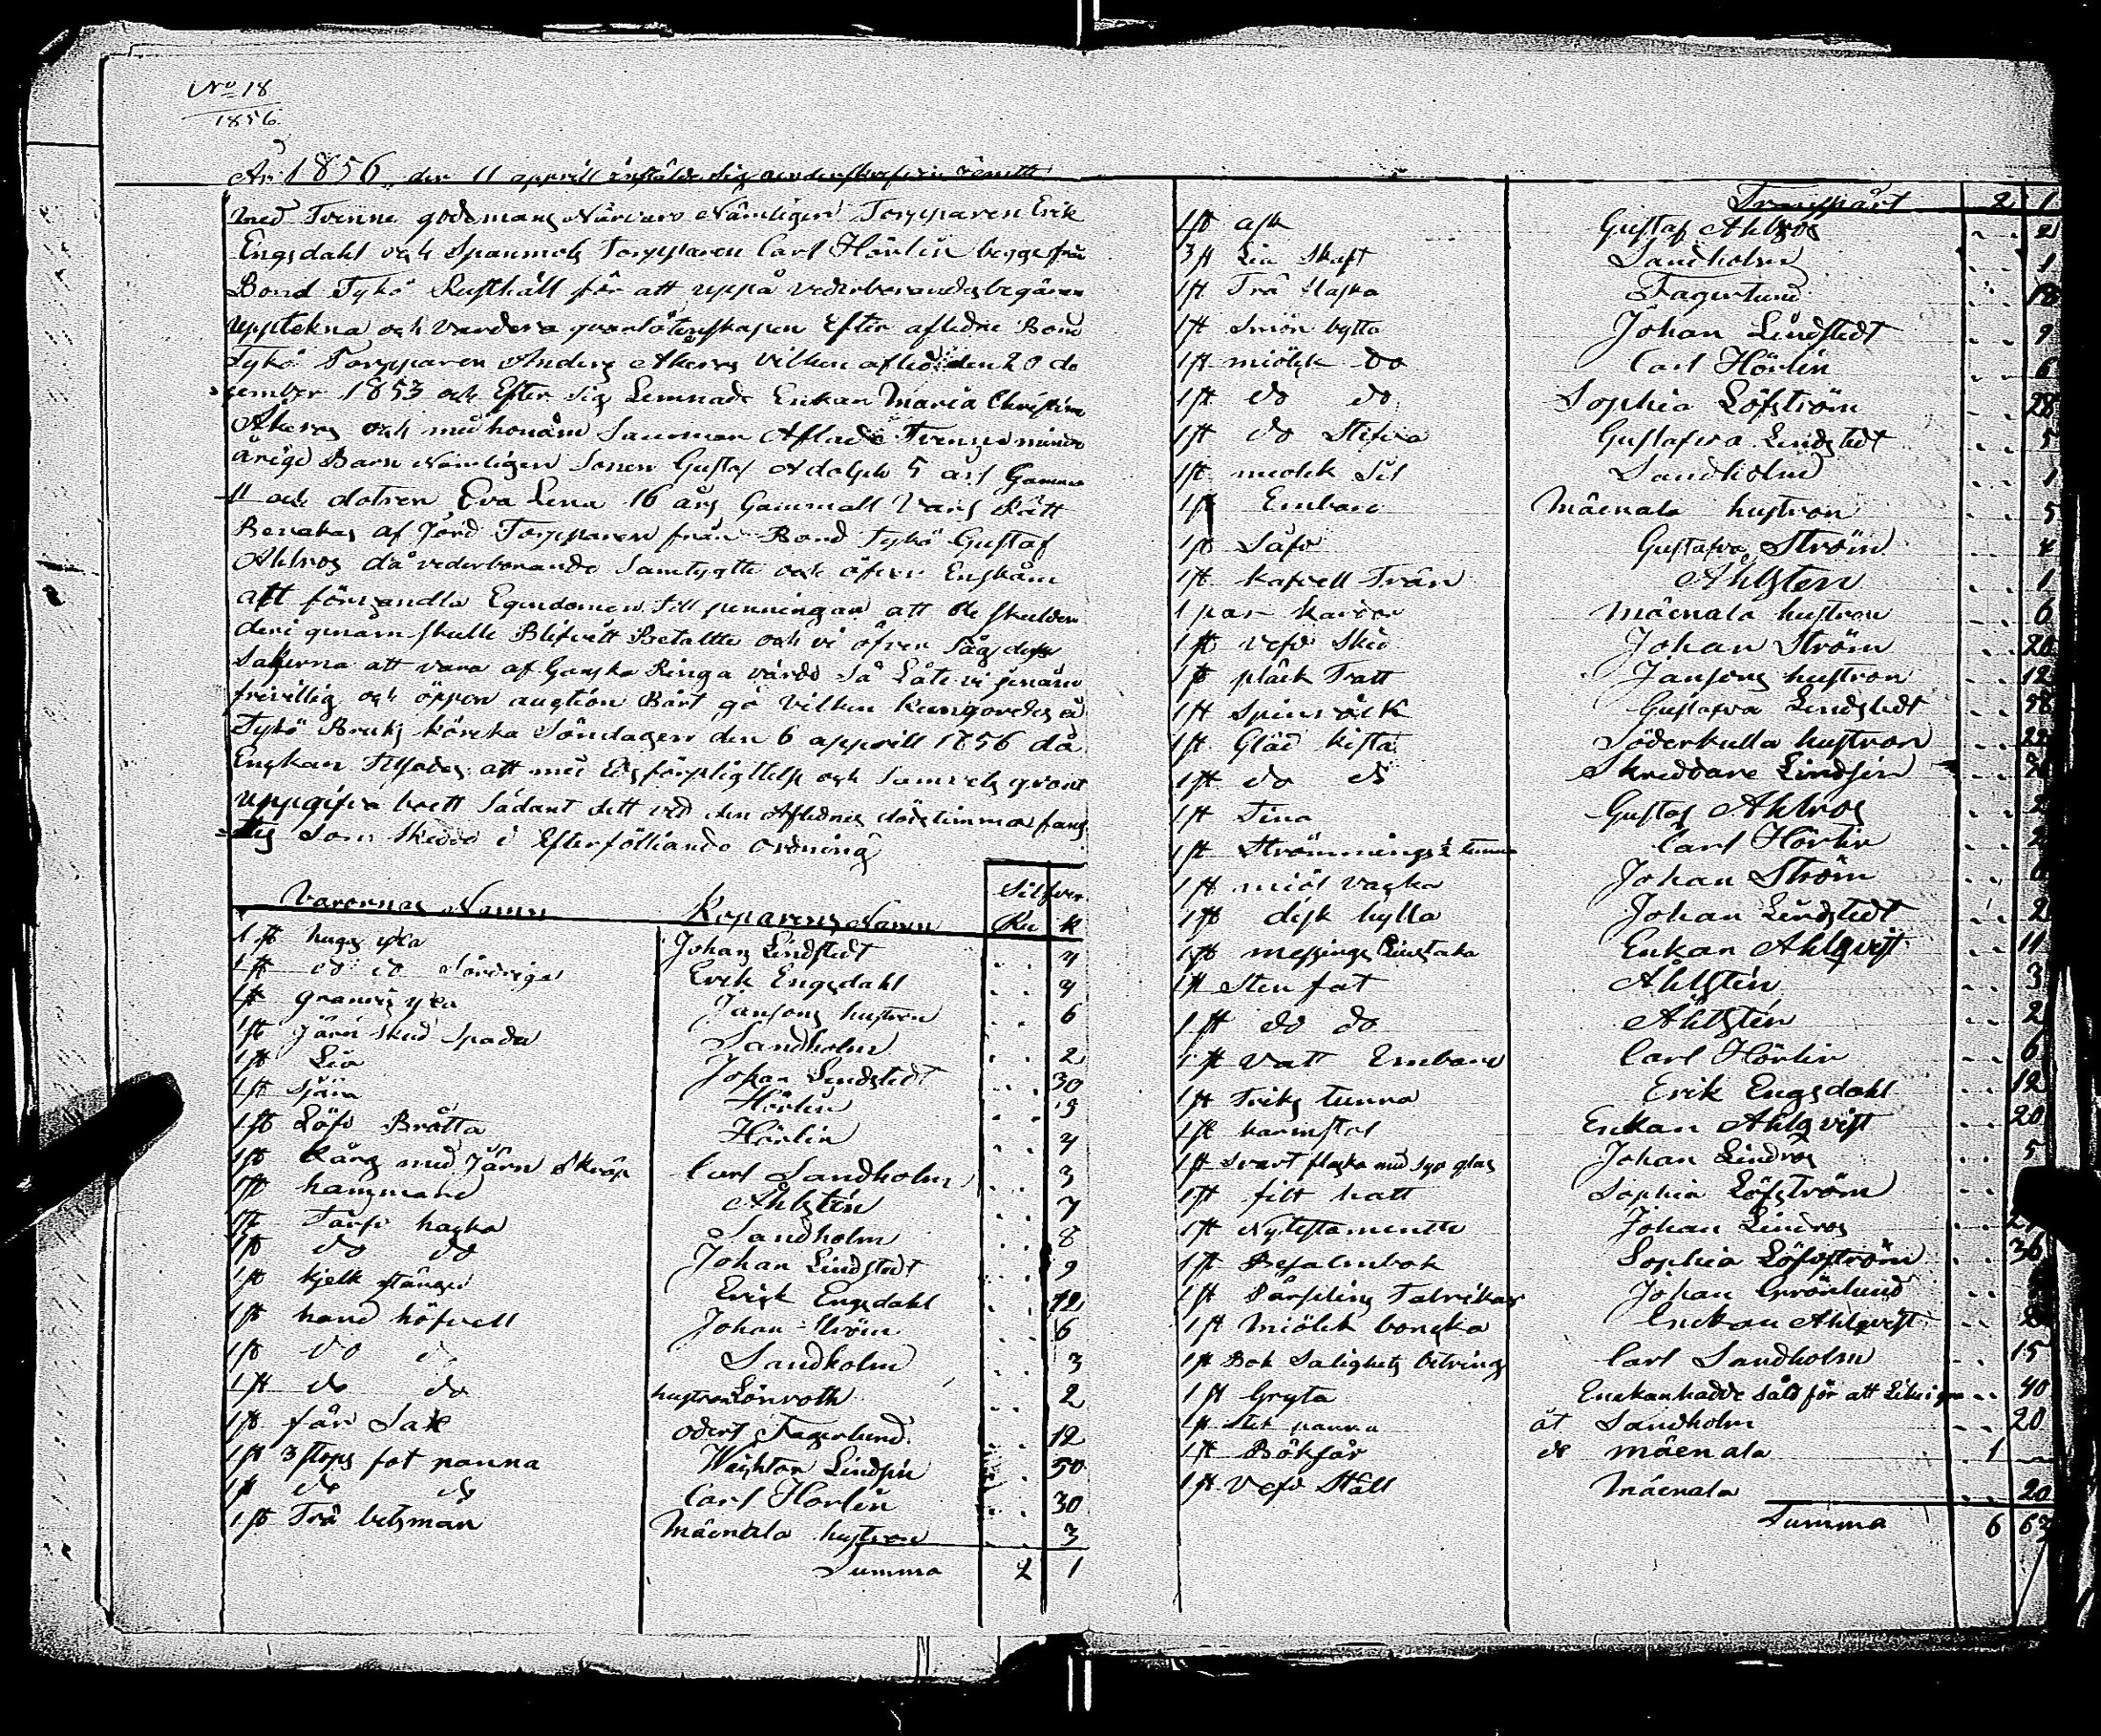 No 18
1856
År 1856 den 11 apprill instälde sig undterskrefvne
med Tvenne godemans Närvaro Nämligen Torpparen Erik
Engsdahl och Spanmols Torpparen Carl Hörlin begge från
Bond Tykö Rusthåll för att uppå vederborandes begäran
upptekna och Vardera qvarlåtenskapen Efter afledne Bond
Tykö Torpparen Anders Akeros Vilken afled den 20 de
cember 1853 och Efter sig Lemnade Enkan Maria Christina
Akeros och med honåm Samman Aflade Tvenne minder
årige Barn Nämligen Sonen Gustaf Adolph 5 års Gamma
ll och dotren Eva Lena 16 års Gammall Vars Rätt
Bevakas af Jord Torpparen från Bond Tykö Gustaf
Ahlros då vederborande Samtyckte och öfver Enskåm
att försandla Egendomen till penningar att de skulder
deri genåm skulle Blifvitt Betaltte och vi öfver Såg desse
Sakerna att vara af Ganska Ringa värde Så Låte vi genåm
frivillig och öppen auction Bårt gå Vilken kungordes i
Tykö Bruks körcka Söndagen den 6 appriill 1856 då
Enskan Tillsades att med Edsförpligttelse och Samvets grant
uppgifva vartt Sådant sitt ved den Aflednes dödstimma fans
ttes Som Skedde i Efterfölliande Ordning
Varornas Namn Koparens Namn Silfver
Ru k
1 st huggyxa Johan Lindstedt 4
1 st do do Söndriga Erik Engsdahl 4
1 st granrisyxa Jansons hustron 6
1 st Järn Skod Spada Sandholm 2
1 st Lia Johan Lindstedt 30
1 st Hörlin 3
1 st Löfv Bråtta Hörlin 4
1 st kårg med Järn Skråp Carl Sandholm 3
1 st hammare Åhlsten 7
1 st Tårf hacka Sandholm 8
1 st do do Johan Lindstedt 9
1 st kjelk stånger Erick Engsdahl 12
1 st hand höfvell Johan Ström 6
1 st do do Sandholm 3
1 st do do hustron Lönroth 2
1 st får Sax odert Fagerlund 12
1 st 3 stops fot panna Lindsin 50
1 st do do Carl Horlin 30
1 st Trä betsman Mäenala hustron 3
Summa 2 1
Transpårt 2 1
1 st ask Gustaf Ahlros 2
3 st Lia Skaft Sandholm 1
1 st Trä flaska Fagerlund 18
1 st Smör bytta Johan Lindstedt 9
1 st miölck do Carl Hörlin 6
1 st do do Sophia Löfström 28
1 st do Stefva Gustafva Lindstedt 5
1 st miölck Sil Sandholm 1
1 st Embare Mäenala hustron 5
1 st Såfv Gustafva Ström 4
1 st kafvell Trän Åhlsten 1
1 par kardor Mäenala hustron 6
1 st vefv Sked Johan Ström 20
1 st plåck Tratt Jansons hustron 12
1 st Spinråck Gustafva Lindstedt 58
1 st Gläd kista Söderkulla hustron 22
1 st do do Skreddare Lindsin
1 st Tina Gustaf Ahlros 2
1 st Strömmings ½ tunna Carl Hörlin 2
1 st miöl vacka Johan Ström 6
1 st disk hylla Johan Lindstedt 2
1 st messings Liustaka Enkan Ahlqvist 11
1 st Sten fat Åhlsten 3
1 st do do Åhlsten 2
1 st Vatt Embare Carl Hörlin 6
1 st Triks tunna Erik Engsdahl 12
1 st karmstol Enkan Ahlqvist 20
1 st Svart flaska med Syp glas Johan Lindros 5
1 st filt hatt Sophia Löfström
1 st Nytestamentte Johan Lindros
1 st Besalmbok Sophia Löfström 36
1 st Pårslins Talrikar Johan Grönlund
1 st Miölck boncka Enckan Ahlqvist 2
1 st Bok Salighets betrings Carl Sandholm 15
1 st Gryta Enckan hadde såld för att 40
1 st Stek panna åt Sandholm 20
1 st Bökfår do Mäenala 1
1 st Vefv Ståll Mäenala 20
Summa 6 63